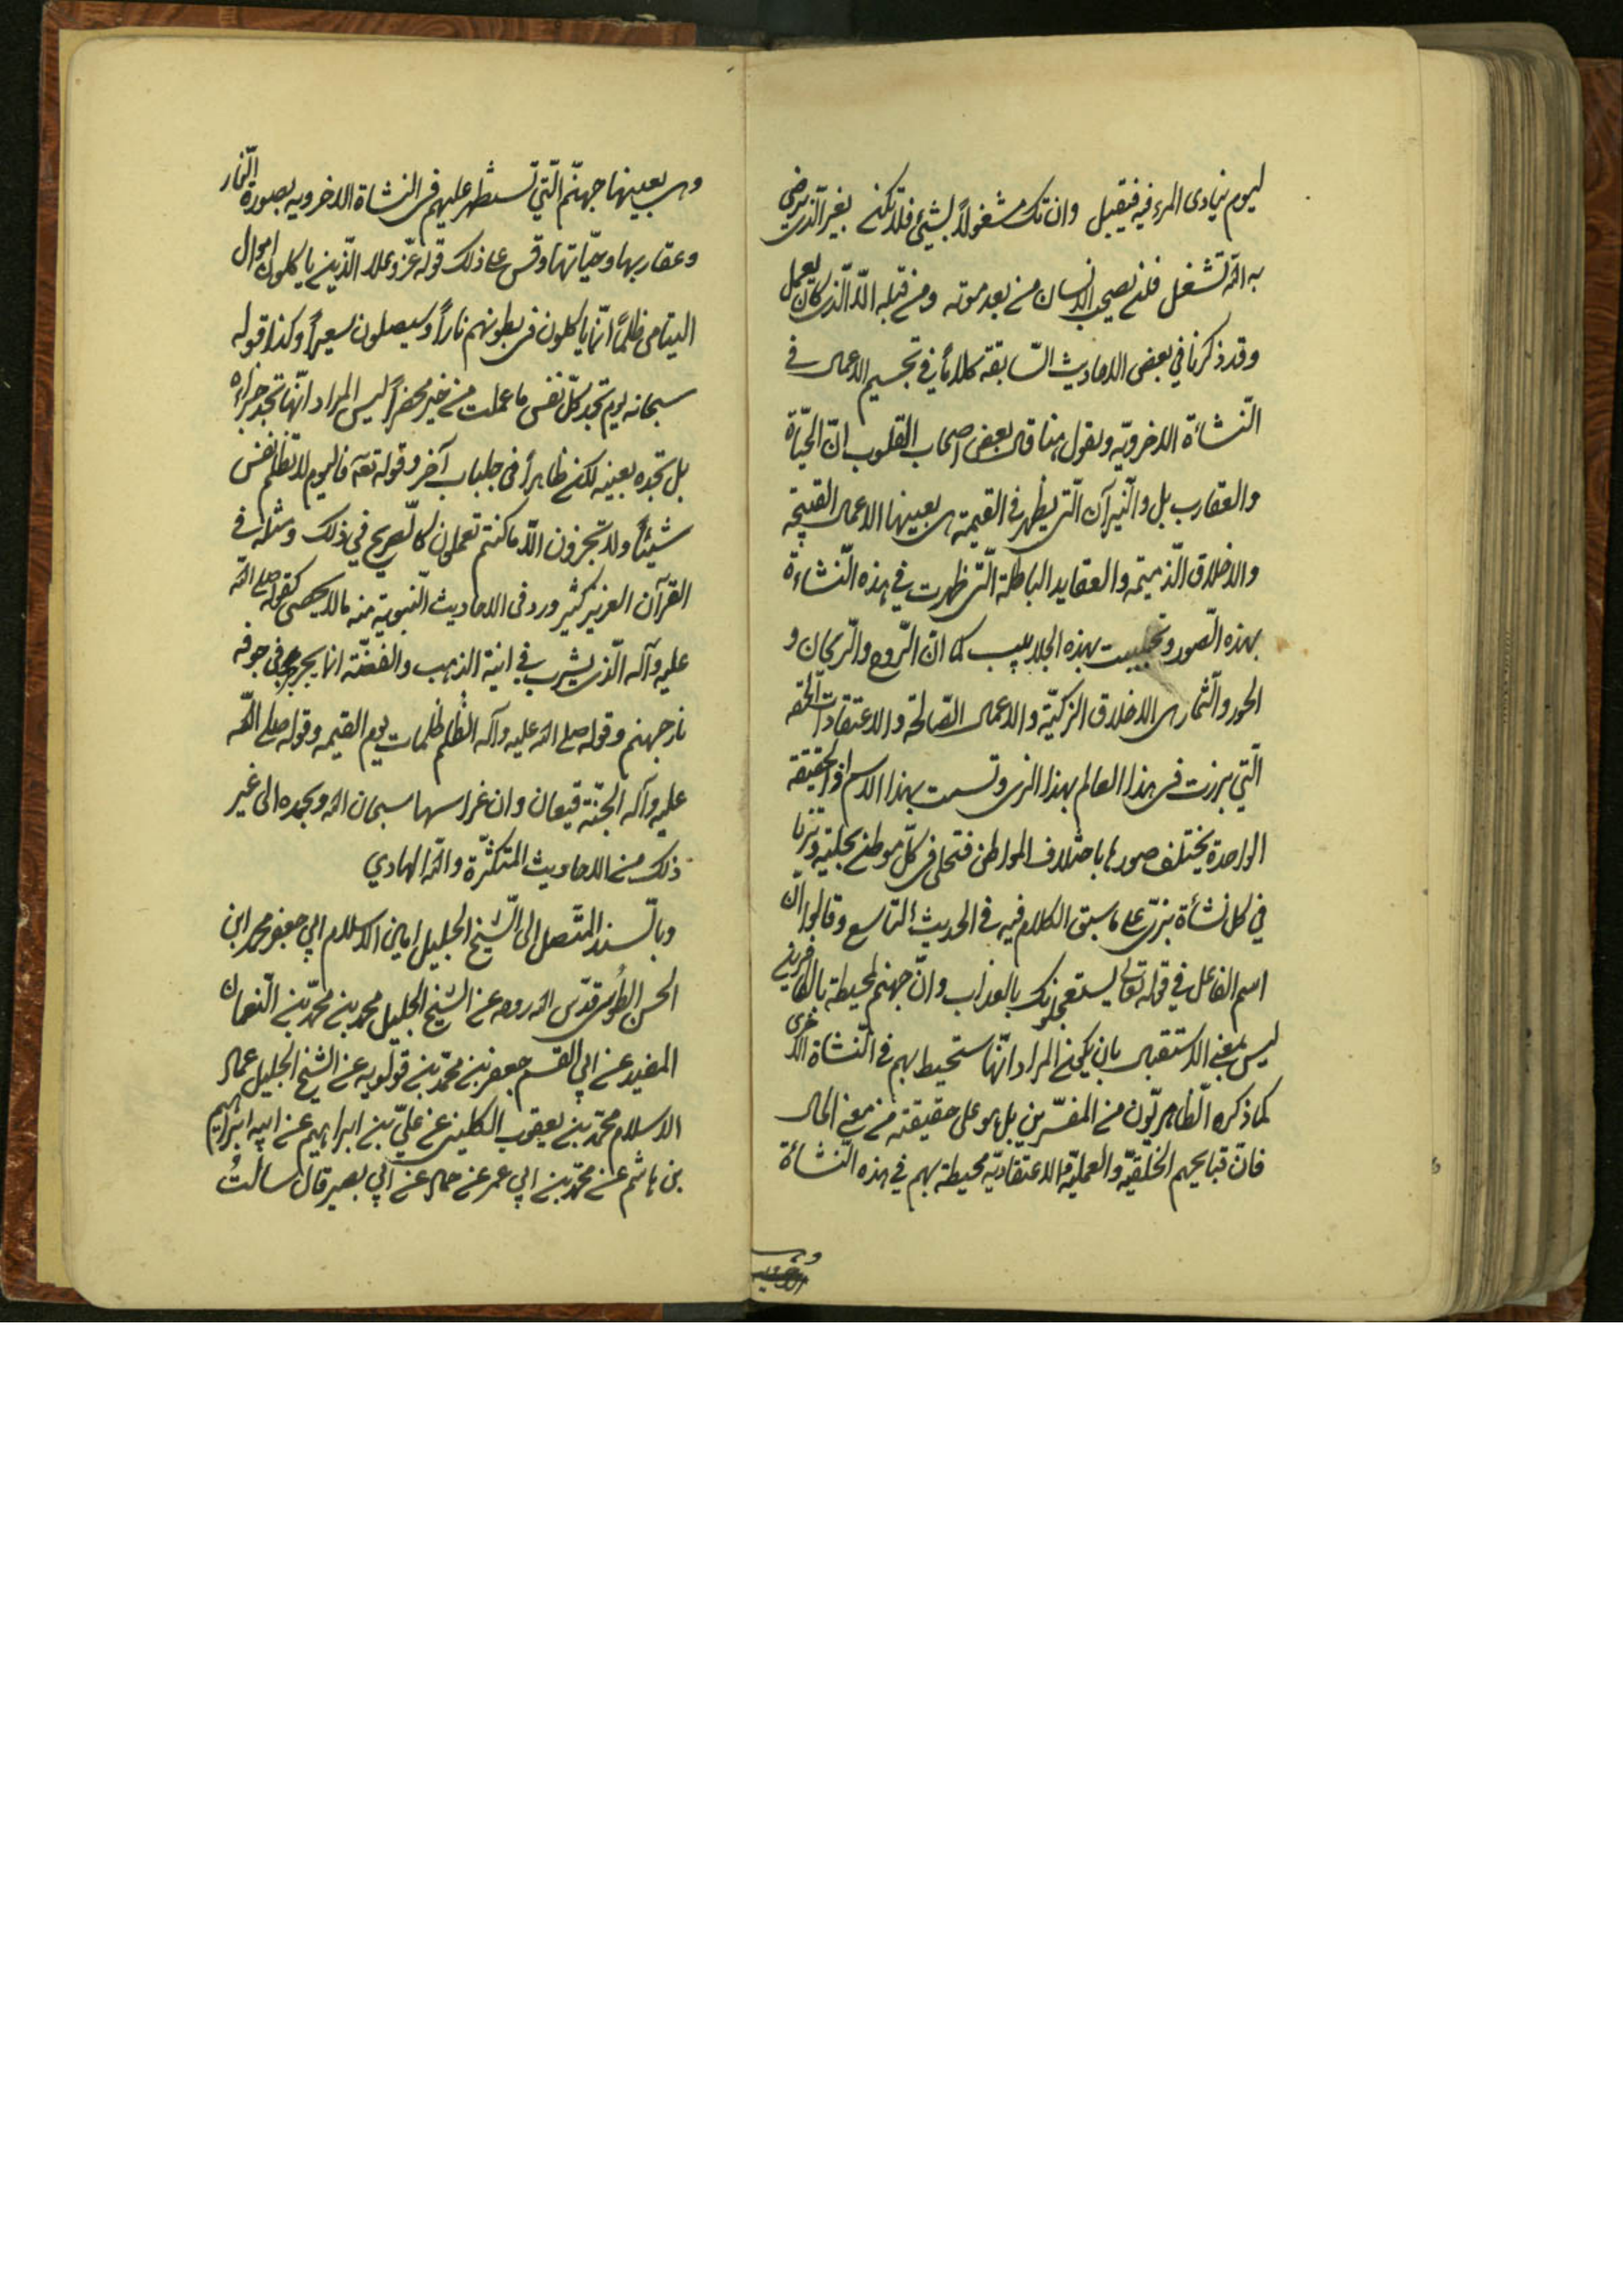 ليوم ينادى المرء فيه فيقبل وان تك مشغولاً بشيئ فلا تكن بغير الّذى يرضى
به الله تشغل فلن يصحب الانسان من بعد موته ومن قبله الّا الّذى كان يعمل
وقد ذكرنا في بعض الاحاديث السّابقة كلاماً في تجسيم الاعمال في
النّشأة الاخرويّه ونقول هنا قال بعض اصحاب القلوب انّ الحيّاة
والعقارب بل والنّيرآن الّتى يظهر في القيمة هى بعينها الاعمال القبيحة
والاخلاق الذّميمه والعقايد الباطلة الّتى ظهرت في هذه النّشاءة
بهذه الصّور وتجلببت بهذه الجلابيب كما انّ الرّوح والرّيحان و
الحور والثّمار هى الاخلاق الزكيّة والاعمال الصّالحة والاعتقادات الحقه
الّتي برزت فى هذا العالم بهذا الزى وتسمت بهذا الاسم اذ الحقيقة
الواحدة يختلف صورها باختلاف المواطن فتحلى فى كلّ موطن بحلية وتزيا
في كل نشأة بزىّ على ما سبق الكلام فيه في الحديث التاسع وقالوا انّ
اسم الفاعل في قوله تعالى يستعجلونك بالعذاب وانّ جهنم لمحيطة بالكافرين
ليس بمعنى الاستقبال بان يكون المراد انّها ستحيط بهم في النّشاة الاخرى
كما ذكره الظّاهريّون من المفسّرين بل هو على حقيقته من معنى الحال
فانّ قبايحهم الخلقيّه والعمليّه والاعتقاديّه محيطة بهم في هذه النّشأة
وهى
وهى بعينها جهنّم الّتي تستظهر عليهم فى النشاة الاخرويه بصورة النّار
وعقاربها وحيّاتها وقس على ذلك قوله عزّ وعلا الّذين ياكلون اموال
اليتامى ظلماً انّما ياكلون فى بطونهم ناراً وسيصلون سعيراً وكذا قوله
سبحانه يوم تجد كلّ نفس ما عملت من خير محضراً ليس المراد انّها تجد جزاءه
بل تجده بعينه لكن ظاهراً فى جلباب آخر وقوله تعه فاليوم لا تظلم نفس
شيئاً ولا تجزون الّا ما كنتم تعملون كالصّريح في ذلك ومثله في
القرآن العزيز كثير وورد فى الاحاديث النّبوية منه ما لا يحصى كقوله صلى الله
عليه وآله الّذى يشرب في انية الذهب والفضّة انما يجرجر في جوفه
نار جهنم وقوله صلى الله عليه وآله الظلم ظلمات يوم القيمه وقوله صلى الله
عليه وآله الجنّة قيعان وان غراسها سبحان الله وبحمده الى غير
ذلك من الاحاديث المتكثّرة والله الهادي
وبالسّند المتّصل الى الشّيخ الجليل امين الاسلام ابي جعفر محمد ابن
الحسن الطُوسى قدّس الله روحه عن الشيخ الجليل محمد بن محمّد بن النّعمان
المفيد عن ابي القسم جعفر بن محمّد بن قولويه عن الشّيخ الجليل عماد
الاسلام محمّد بن يعقوب الكلينى عن عليّ بن ابراهيم عن ابيه ابراهيم
بن هاشم عن محمّد بن ابي عمر عن حماد عن ابي بصير قال سالتُ